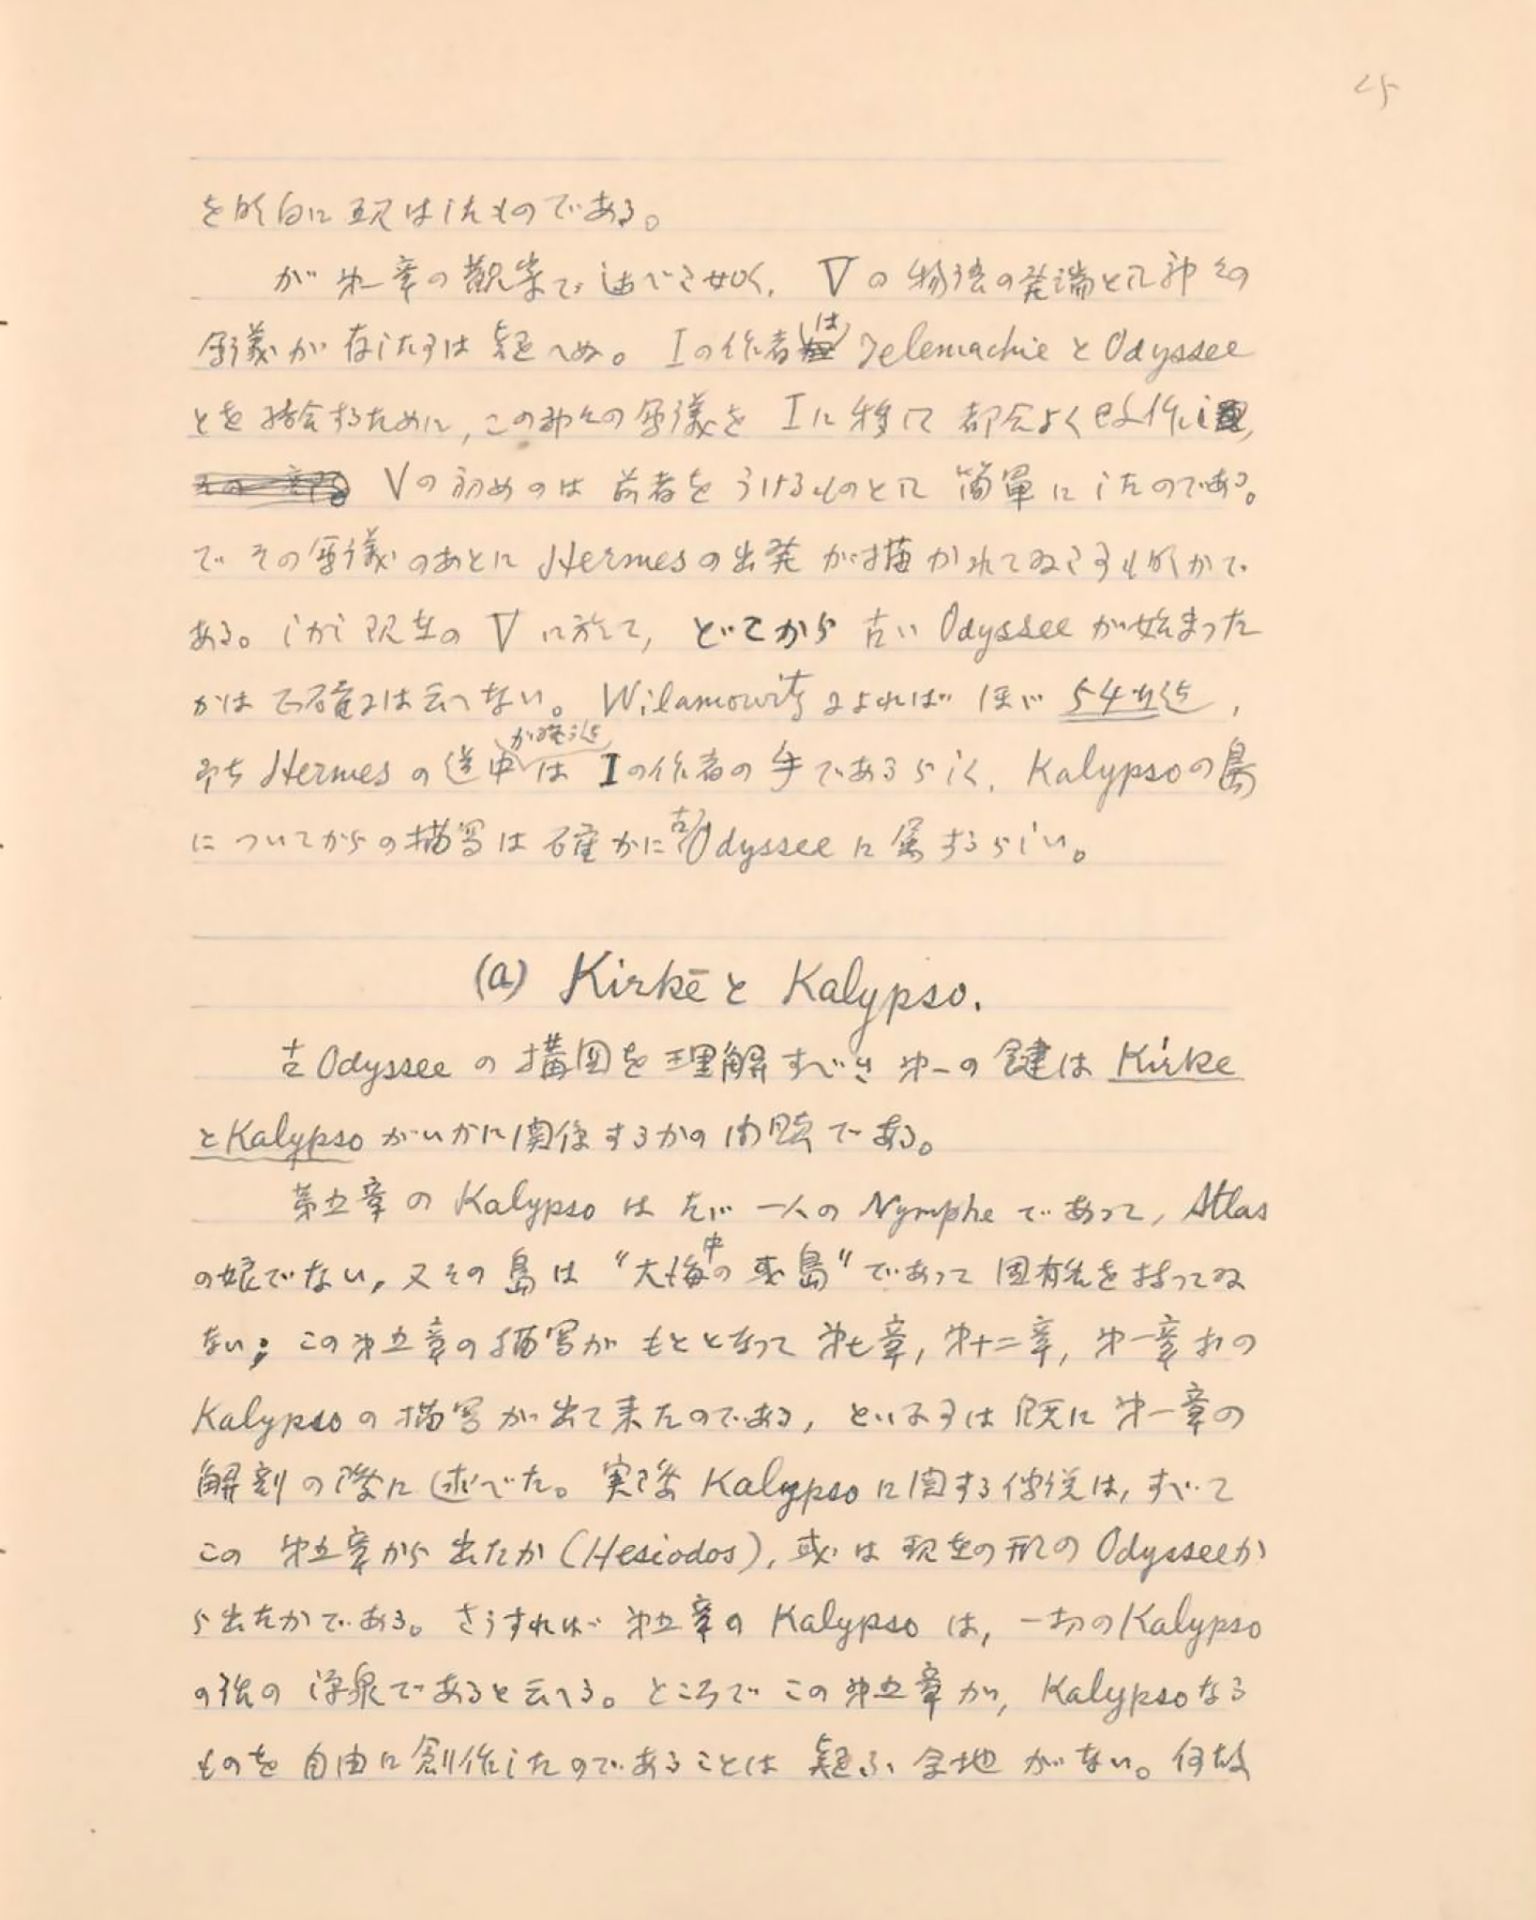 25
を明白に現はしたものである。
が第一章の観察で述べた如く, Vの物語の発端として神々の
会議が存した事は疑へぬ。Iの作者は TelemachieとOdyssee
とを接合するために, この神々の会議を Iに移して 都合よく改作し,
Vの初めのは 前者を うけるものとして 簡単にしたのである。
で その会議のあとに Hermesの出発が描かれてゐた事も明かで
ある。しかし現在の Vに於て, どこから 古い Odyssee が始まった
かは 正確には云へない。Wilamowitzによれば ほゞ 54迄,
即ち Hermesの途中が終る迄は Iの作者の手であるらしく, Kalypsoの島
についてからの描写は確かに古Odysseeに属するらしい。
(a) Kirkēと Kalypso.
古Odysseeの構図を理解すべき 第一の鍵は Kirke
とKalypsoがいかに関係するかの問題である。
第五章の Kalypsoは たゞ一人の Nympheであって, Atlas
の娘でない, 又その島は “大海中の或島” であって 固有名を持ってゐ
ない; この第五章の描写がもととなって 第七章, 第十二章, 第一章等の
Kalypsoの描写が出て来たのである, といふ事は既に第一章の
解剖の際に述べた。実際 Kalypsoに関する伝説は, すべて
この 第五章から出たか (Hesiodos), 或は現在の形のOdysseeか
ら出たかである。さうすれば 第五章の Kalypsoは, 一切のKalypso
の話の源泉であると云へる。ところで この第五章が, Kalypsoなる
ものを自由に創作したのであることは 疑ふ余地がない。何故